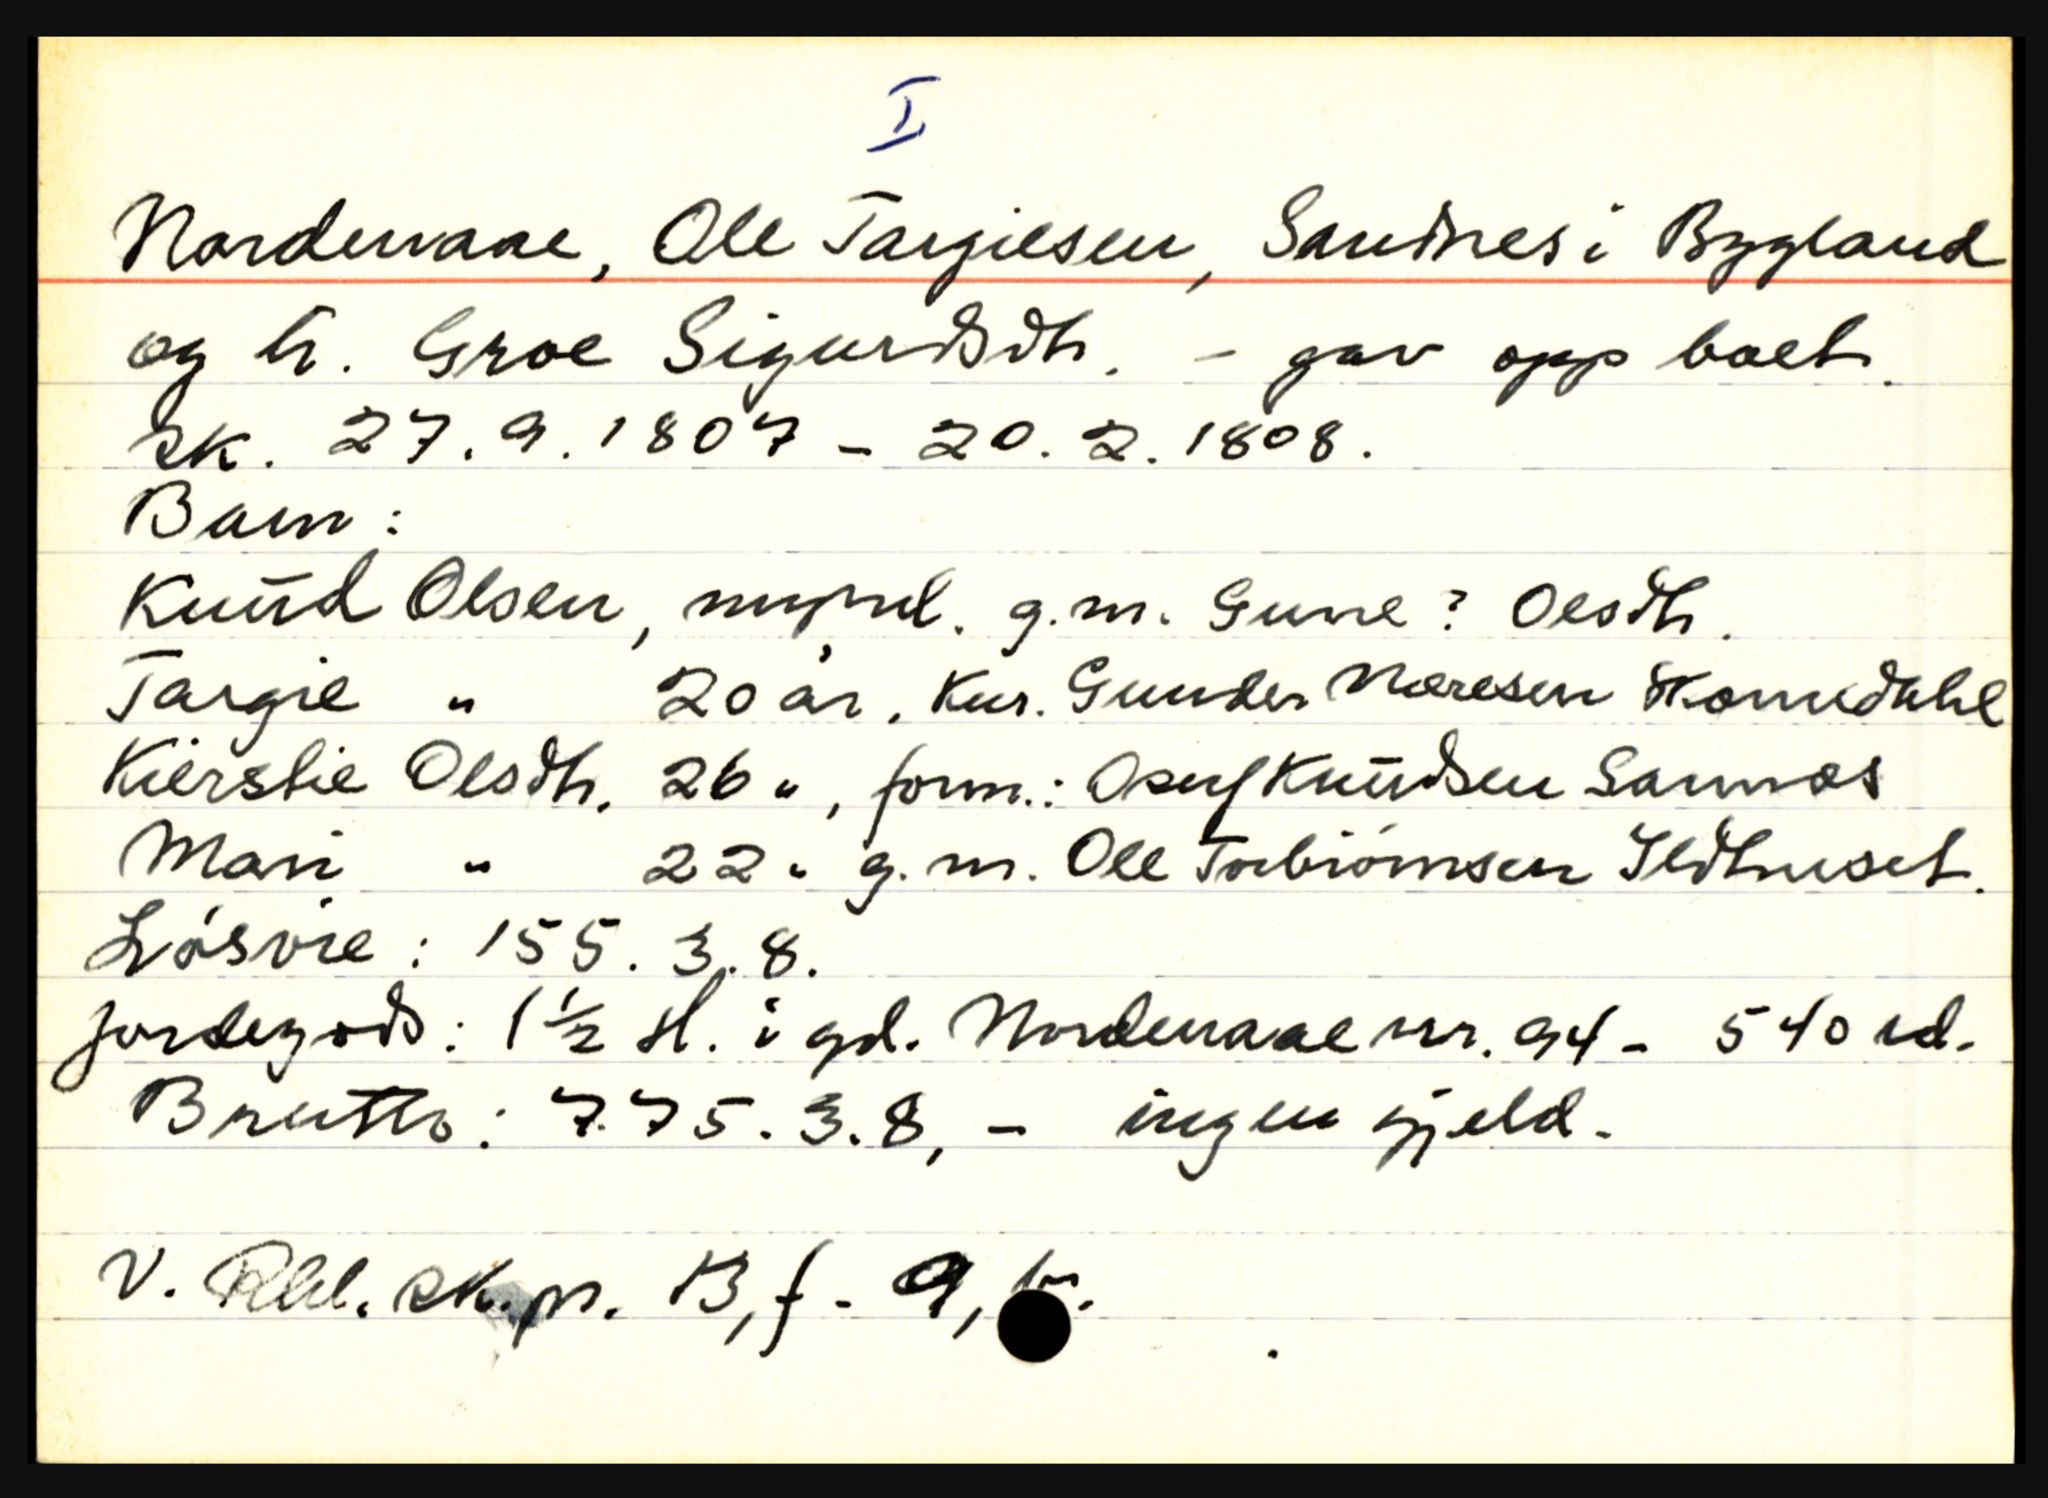 I
Nordenaae, Ole Targiesen, Sandnes i Bygland
og h. Groe Sigurdsdtr. - gav opp boet.
sk. 27.9.1807 - 20.2.1808.
Barn:
Knud Olsen, mynd. g.m. Gune? Olsdtr.
Targie " 20 år, kur. Gunder Næresen Skomedahl
Kierstie Olsdtr. 26 ", form.: Asuf Knudsen Sannæs
Mari " 22 " g.m. Ole Torbiørnsen Ildhuset.
Løsøre: 155.3.8.
Jordegods: 1 1/2 hl. i gd. Nordenaae nr. 94 - 540 rd.
Brutto: 775.3.8, - ingen gjeld.
V. Rbl. sk.pr. 13, f. 9, b.